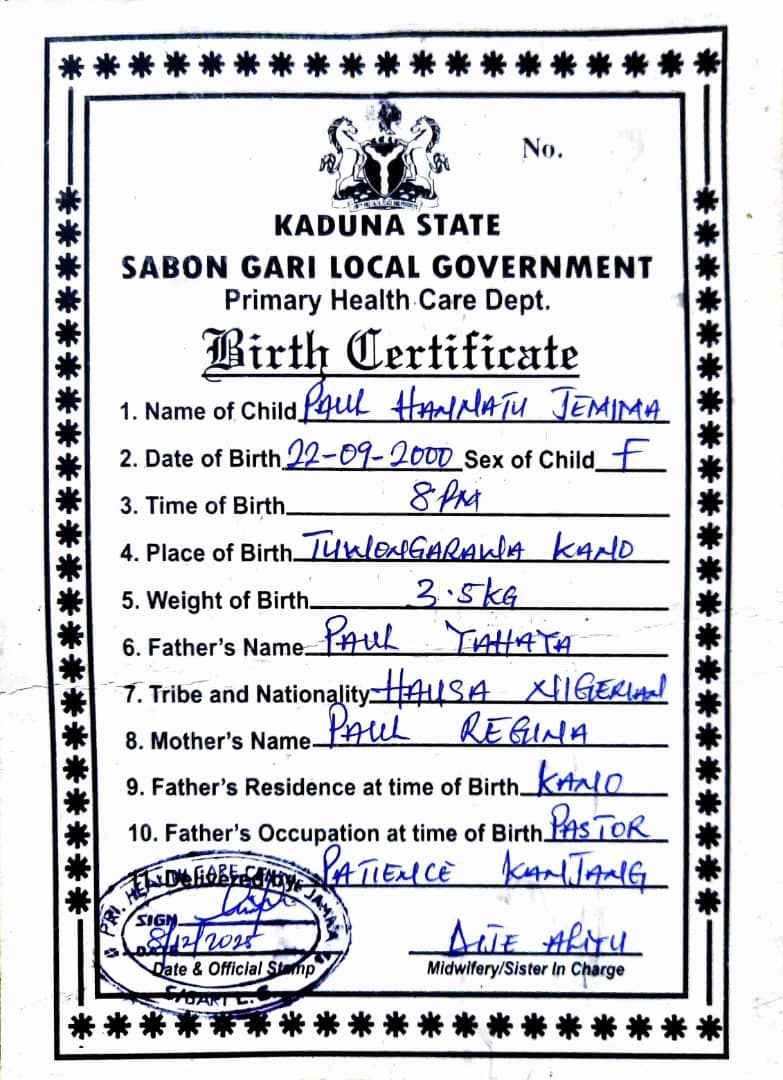 No.
KADUNA STATE
SABON GARI LOCAL GOVERNMENT
Primary Health Care Dept.
Birth Certificate
1. Name of Child PAUL HANNATU JEMIMA
2. Date of Birth 22-09-2000 Sex of Child F
3. Time of Birth 8PM
4. Place of Birth TUWONGARAWA KANO
5. Weight of Birth 3.5KG
6. Father's Name PAUL YAHAYA
7. Tribe and Nationality HAUSA NIGERIAN
8. Mother's Name PAUL REGINA
9. Father's Residence at time of Birth KANO
10. Father's Occupation at time of Birth PASTOR
11. Delivered by PATIENCE KANJANG
PRI. HEALTH CARE CENTRE
SIGN
8/12/2025
DATE
Date & Official Stamp
Midwifery/Sister In Charge
S/GARI L.G